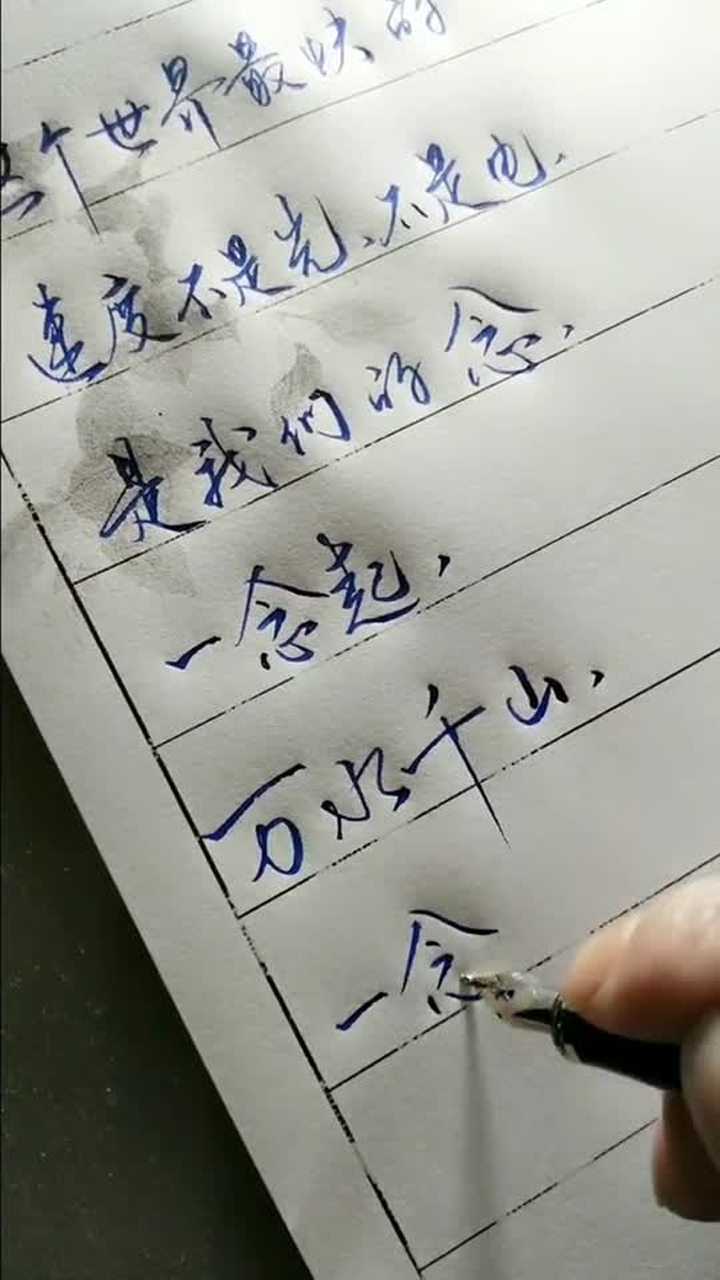 这个世界最快的
速度不是光、不是电、
是我们的念,
一念起,
万水千山,
一念